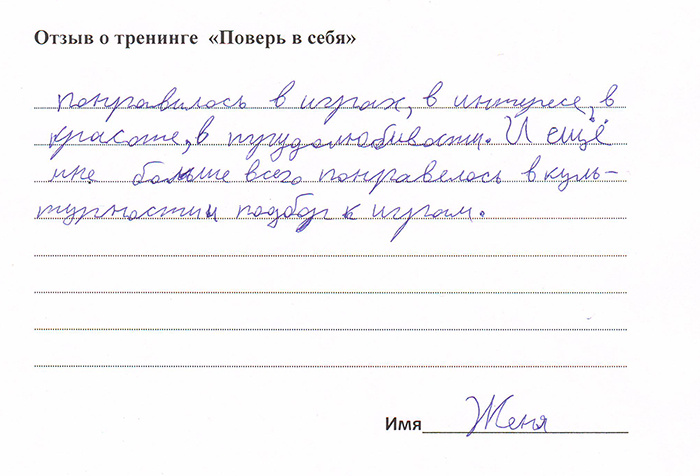 Отзыв о тренинге «Поверь в себя»
понравилось в играх, в интересе, в
красоте, в трудолюбивости. И ещё
мне больше всего понравелось в куль-
турности и подбор к играм.
Имя Женя